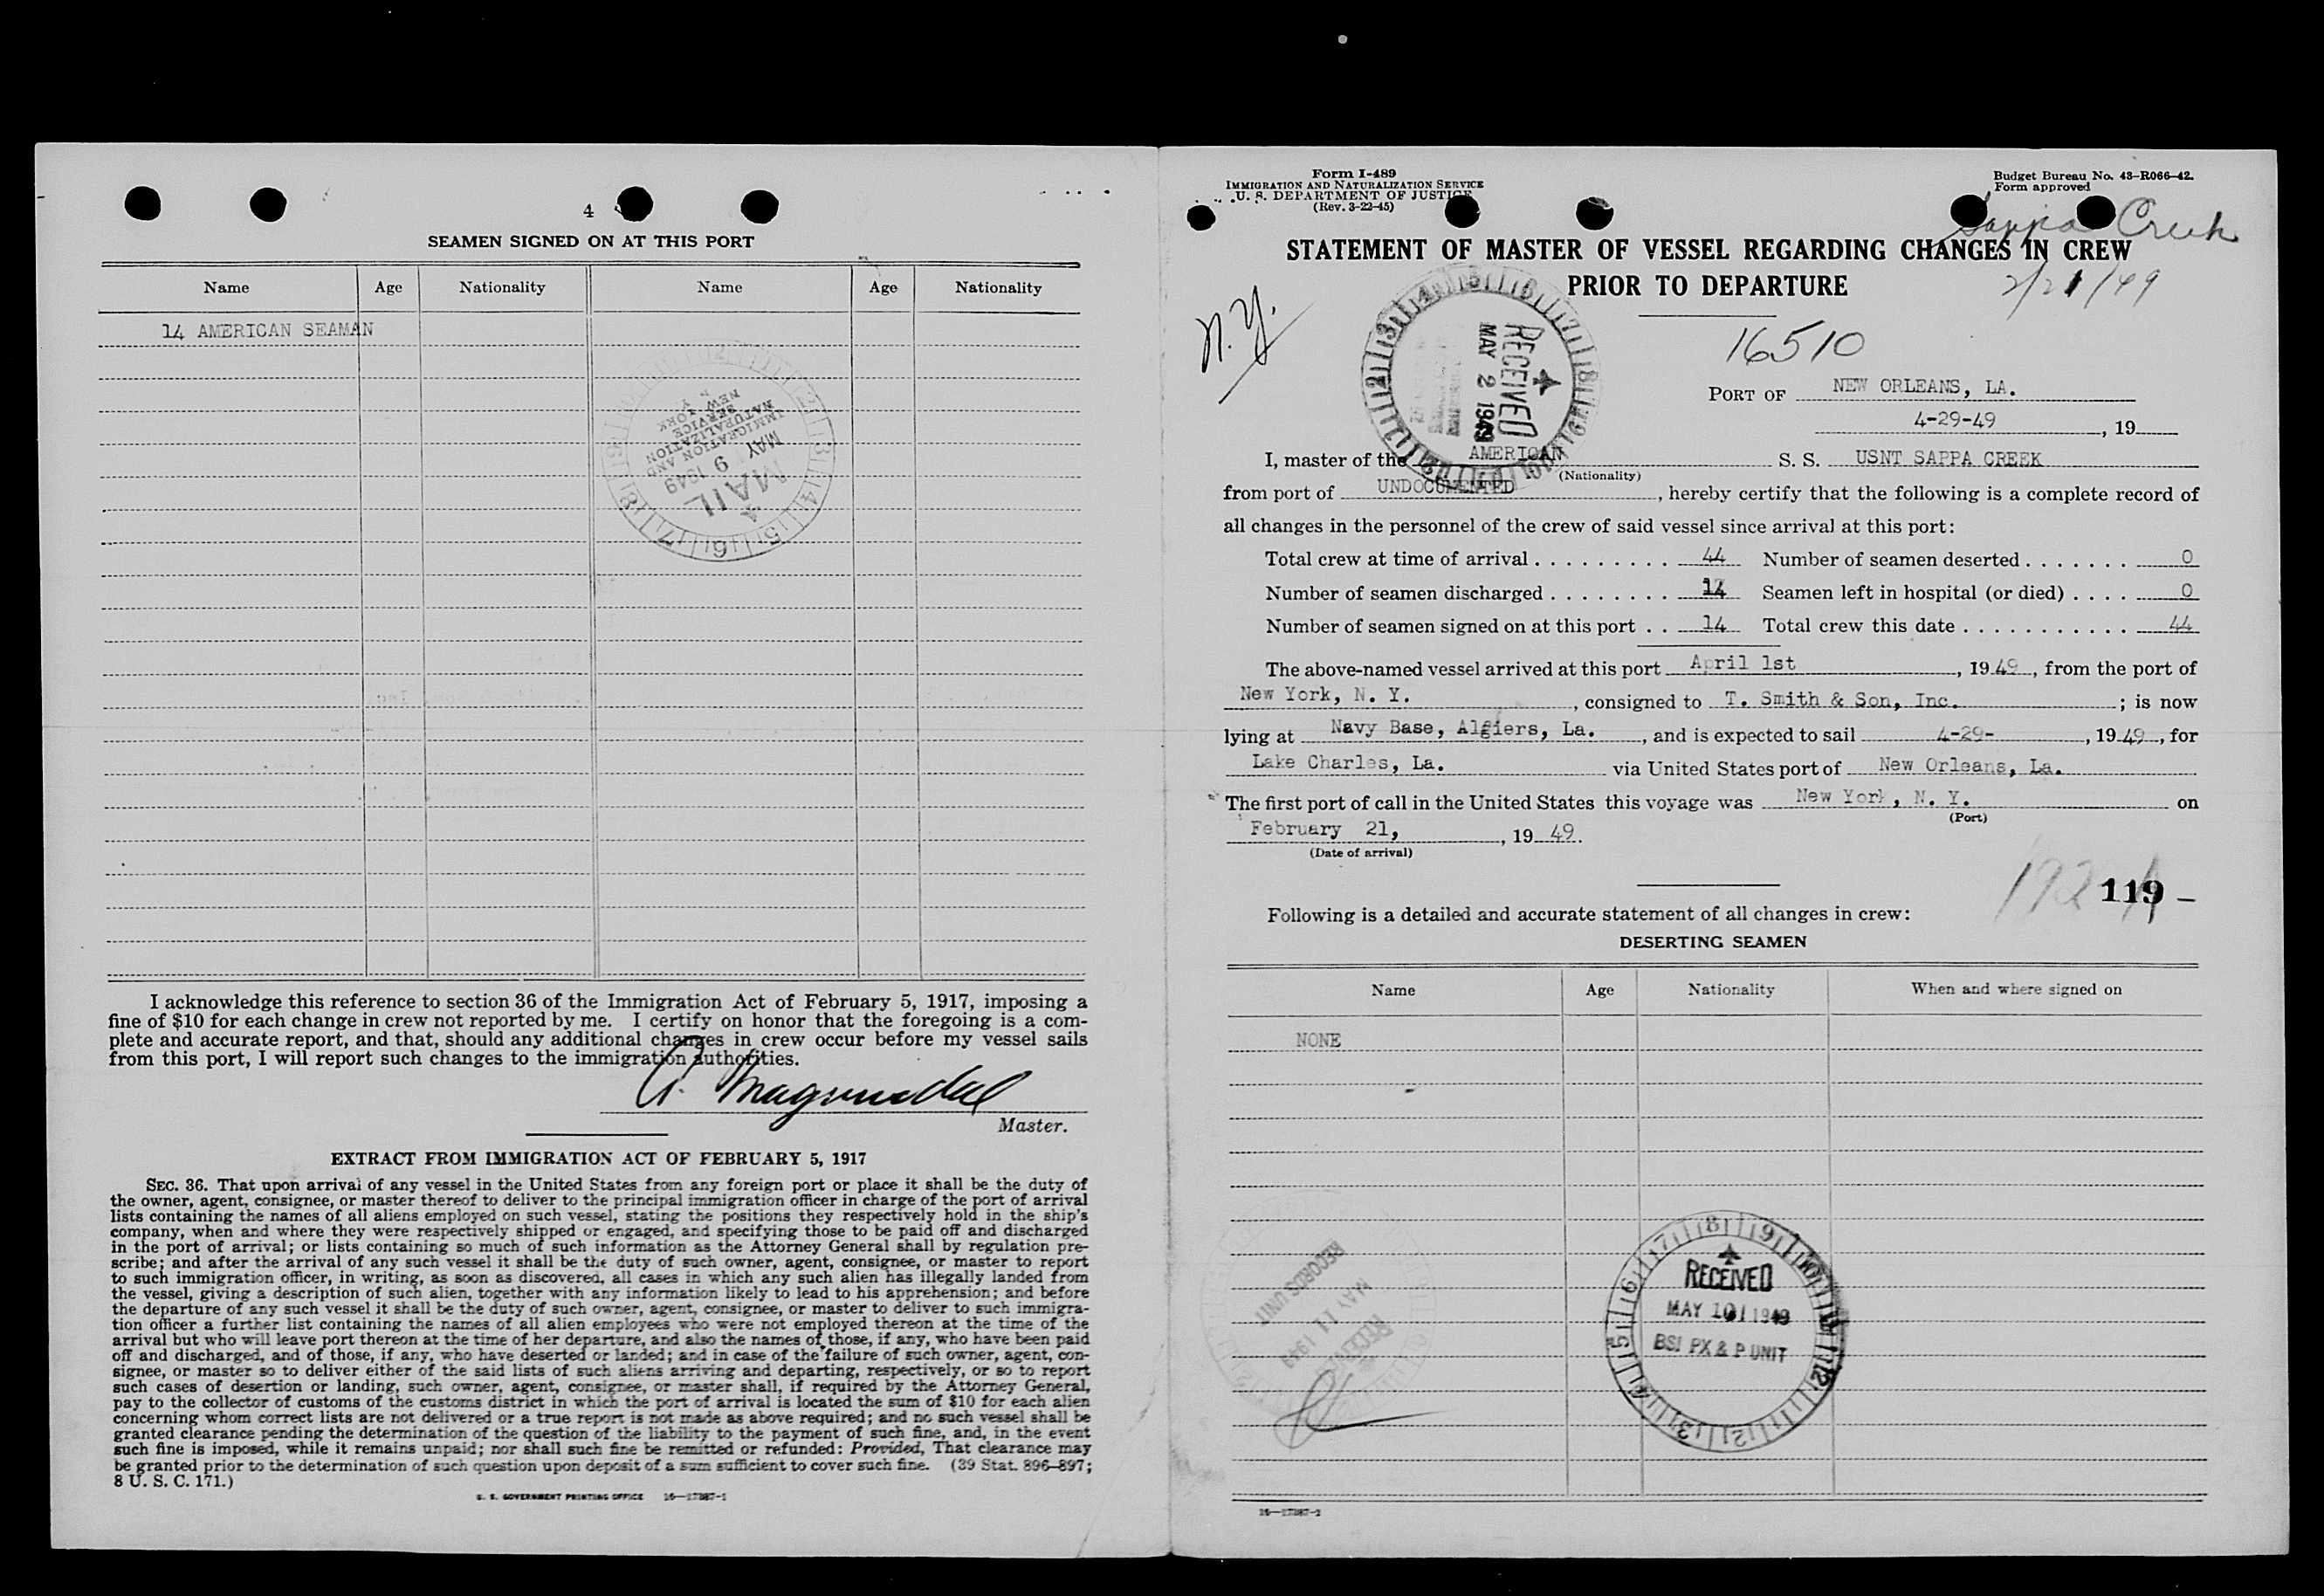 4
SEAMEN SIGNED ON AT THIS PORT
Name Age Nationality Name Age Nationality
14 AMERICAN SEAMAN
IMMIGRATION AND
NATURALIZATION
SERVICE
NEW YORK
N. Y.
MAY 9 1949
MAIL
I acknowledge this reference to section 36 of the Immigration Act of February 5, 1917, imposing a
fine of $10 for each change in crew not reported by me. I certify on honor that the foregoing is a com-
plete and accurate report, and that, should any additional changes in crew occur before my vessel sails
from this port, I will report such changes to the immigration authorities.
Master.
EXTRACT FROM IMMIGRATION ACT OF FEBRUARY 5, 1917
SEC. 36. That upon arrival of any vessel in the United States from any foreign port or place it shall be the duty of
the owner, agent, consignee, or master thereof to deliver to the principal immigration officer in charge of the port of arrival
lists containing the names of all aliens employed on such vessel, stating the positions they respectively hold in the ship's
company, when and where they were respectively shipped or engaged, and specifying those to be paid off and discharged
in the port of arrival; or lists containing so much of such information as the Attorney General shall by regulation pre-
scribe; and after the arrival of any such vessel it shall be the duty of such owner, agent, consignee, or master to report
to such immigration officer, in writing, as soon as discovered, all cases in which any such alien has illegally landed from
the vessel, giving a description of such alien, together with any information likely to lead to his apprehension; and before
the departure of any such vessel it shall be the duty of such owner, agent, consignee, or master to deliver to such immigra-
tion officer a further list containing the names of all alien employees who were not employed thereon at the time of the
arrival but who will leave port thereon at the time of her departure, and also the names of those, if any, who have been paid
off and discharged, and of those, if any, who have deserted or landed; and in case of the failure of such owner, agent, con-
signee, or master so to deliver either of the said lists of such aliens arriving and departing, respectively, or so to report
such cases of desertion or landing, such owner, agent, consignee, or master shall, if required by the Attorney General,
pay to the collector of customs of the customs district in which the port of arrival is located the sum of $10 for each alien
concerning whom correct lists are not delivered or a true report is not made as above required; and no such vessel shall be
granted clearance pending the determination of the question of the liability to the payment of such fine, and, in the event
such fine is imposed, while it remains unpaid; nor shall such fine be remitted or refunded: Provided, That clearance may
be granted prior to the determination of such question upon deposit of a sum sufficient to cover such fine. (39 Stat. 896–897;
8 U. S. C. 171.)
U. S. GOVERNMENT PRINTING OFFICE 16—17387-1
Form I-489
IMMIGRATION AND NATURALIZATION SERVICE
U. S. DEPARTMENT OF JUSTICE
(Rev. 3-22-45)
Budget Bureau No. 43-R066-42.
Form approved
Sappa Creek
STATEMENT OF MASTER OF VESSEL REGARDING CHANGES IN CREW
PRIOR TO DEPARTURE
2/21/49
N.Y.
RECEIVED
MAY 2 1949
16510
PORT OF NEW ORLEANS, LA.
4-29-49, 19
I, master of the AMERICAN S. S. USNT SAPPA CREEK
(Nationality)
from port of UNDOCUMENTED, hereby certify that the following is a complete record of
all changes in the personnel of the crew of said vessel since arrival at this port:
Total crew at time of arrival 44 Number of seamen deserted 0
Number of seamen discharged 14 Seamen left in hospital (or died) 0
Number of seamen signed on at this port 14 Total crew this date 44
The above-named vessel arrived at this port April 1st, 1949, from the port of
New York, N. Y., consigned to T. Smith & Son, Inc.; is now
lying at Navy Base, Algiers, La., and is expected to sail 4-29-, 1949, for
Lake Charles, La. via United States port of New Orleans, La.
The first port of call in the United States this voyage was New York, N. Y. on
(Port)
February 21, 1949.
(Date of arrival)
119 –
Following is a detailed and accurate statement of all changes in crew:
DESERTING SEAMEN
Name Age Nationality When and where signed on
NONE
RECORDS UNIT
MAY 11 1949
RECEIVED
RECEIVED
MAY 10 1949
BSI PX & P UNIT
16—17387-1